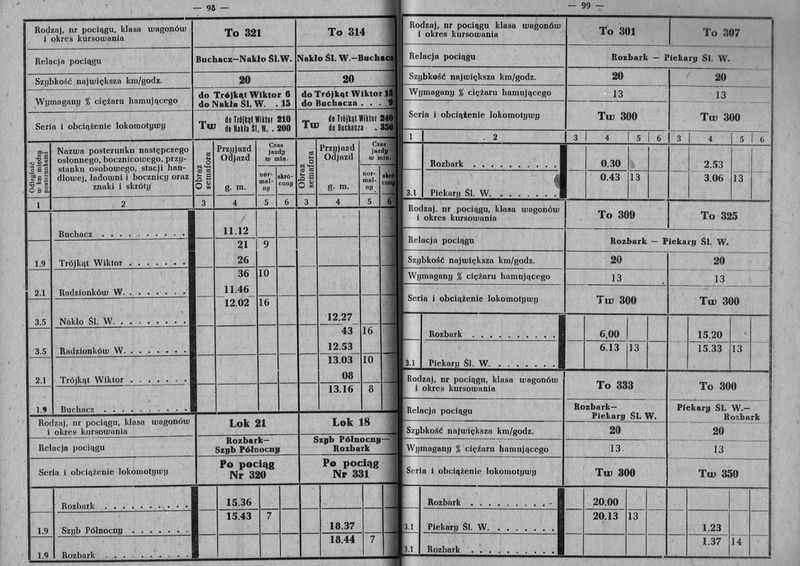 — 98 —
Rodzaj, nr pociągu, klasa wagonów i okres kursowania To 321 To 314
Relacja pociągu Buchacz—Nakło Śl.W. Nakło Śl. W.—Buchacz
Szybkość największa km/godz. 20 20
Wymagany % ciężaru hamującego do Trójkąt Wiktor 6 do Trójkąt Wiktor 13
do Nakła Śl. W. . 15 do Buchacza . . . 9
Seria i obciążenie lokomotywy Tw do Trójkąt Wiktor 210 Tw do Trójkąt Wiktor 240
do Nakła Śl. W. . 200 do Buchacza . 350
Odległość w km między posterunkami
Nazwa posterunku następczego osłonnego, bocznicowego, przystanku osobowego, stacji handlowej, ładowni i bocznicy oraz znaki i skróty
Obraz semafora Przyjazd Odjazd g. m. Czas jazdy w min. normalny skrócony
Obraz semafora Przyjazd Odjazd g. m. Czas jazdy w min. normalny skrócony
1 2 3 4 5 6 3 4 5 6
Buchacz . . . . . . . . . 11.12
21 9
1.9 Trójkąt Wiktor . . . . . . 26
36 10
2.1 Radzionków W. . . . . . . 11.46
12.02 16
3.5 Nakło Śl. W. . . . . . . . 12.27
43 16
3.5 Radzionków W. . . . . . . 12.53
13.03 10
2.1 Trójkąt Wiktor . . . . . . 08
13.16 8
1.9 Buchacz . . . . . . . . .
Rodzaj, nr pociągu, klasa wagonów i okres kursowania Lok 21 Lok 18
Relacja pociągu Rozbark—Szyb Północny Szyb Północny—Rozbark
Seria i obciążenie lokomotywy Po pociąg Nr 320 Po pociąg Nr 331
Rozbark . . . . . . . . . 15.36
15.43 7
1.9 Szyb Północny . . . . . . 18.37
18.44 7
1.9 Rozbark . . . . . . . . .
— 99 —
Rodzaj, nr pociągu, klasa wagonów i okres kursowania To 301 To 307
Relacja pociągu Rozbark — Piekary Śl. W.
Szybkość największa km/godz. 20 20
Wymagany % ciężaru hamującego 13 13
Seria i obciążenie lokomotywy Tw 300 Tw 300
1 2 3 4 5 6 3 4 5 6
Rozbark . . . . . . . . . 0.30 2.53
0.43 13 3.06 13
3.1 Piekary Śl. W. . . . . . .
Rodzaj, nr pociągu, klasa wagonów i okres kursowania To 309 To 325
Relacja pociągu Rozbark — Piekary Śl. W.
Szybkość największa km/godz. 20 20
Wymagany % ciężaru hamującego 13 13
Seria i obciążenie lokomotywy Tw 300 Tw 300
Rozbark . . . . . . . . . 6.00 15.20
6.13 13 15.33 13
3.1 Piekary Śl. W. . . . . . .
Rodzaj, nr pociągu, klasa wagonów i okres kursowania To 333 To 300
Relacja pociągu Rozbark—Piekary Śl. W. Piekary Śl. W.—Rozbark
Szybkość największa km/godz. 20 20
Wymagany % ciężaru hamującego 13 13
Seria i obciążenie lokomotywy Tw 300 Tw 350
Rozbark . . . . . . . . . 20.00
20.13 13
3.1 Piekary Śl. W. . . . . . . 1.23
1.37 14
3.1 Rozbark . . . . . . . . .